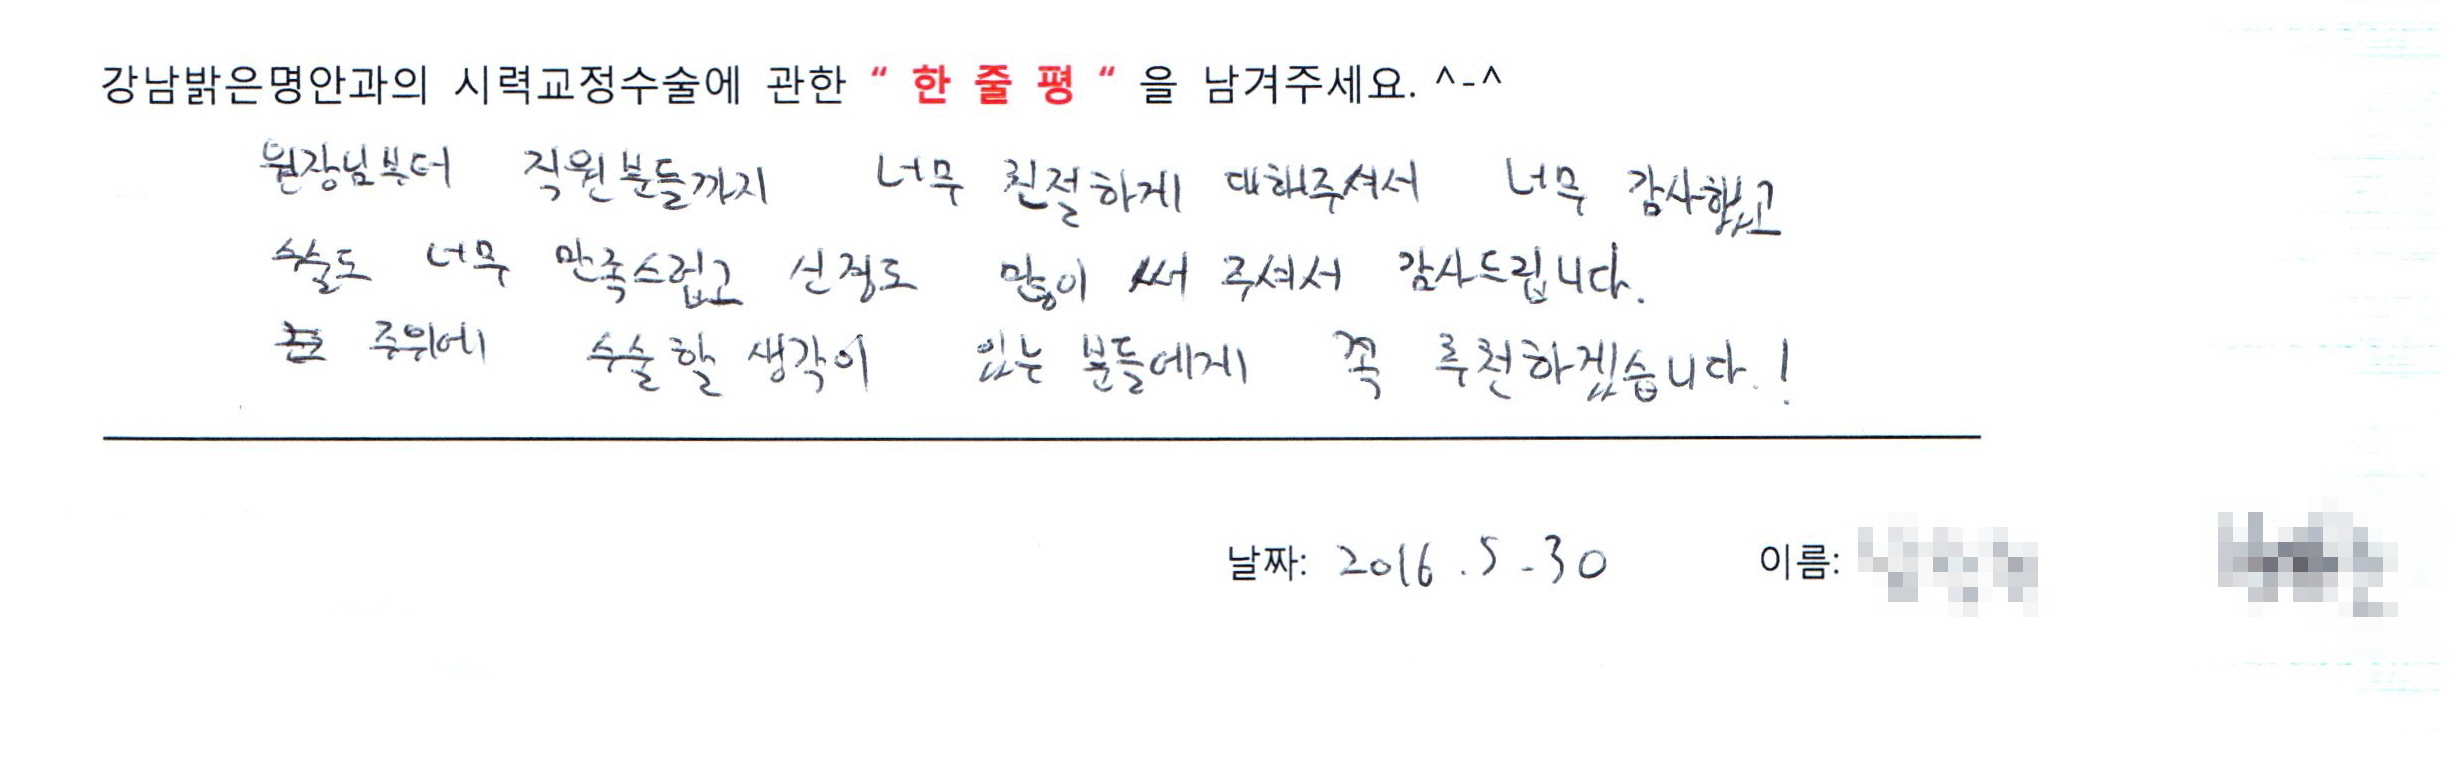 강남밝은명안과의 시력교정수술에 관한 “ 한 줄 평 “ 을 남겨주세요. ^-^
원장님부터 직원분들까지 너무 친절하게 대해주셔서 너무 감사했고
수술도 너무 만족스럽고 신경도 많이 써 주셔서 감사드립니다.
주위에 수술할 생각이 있는 분들에게 꼭 추천하겠습니다.!
날짜: 2016.5-30 이름: